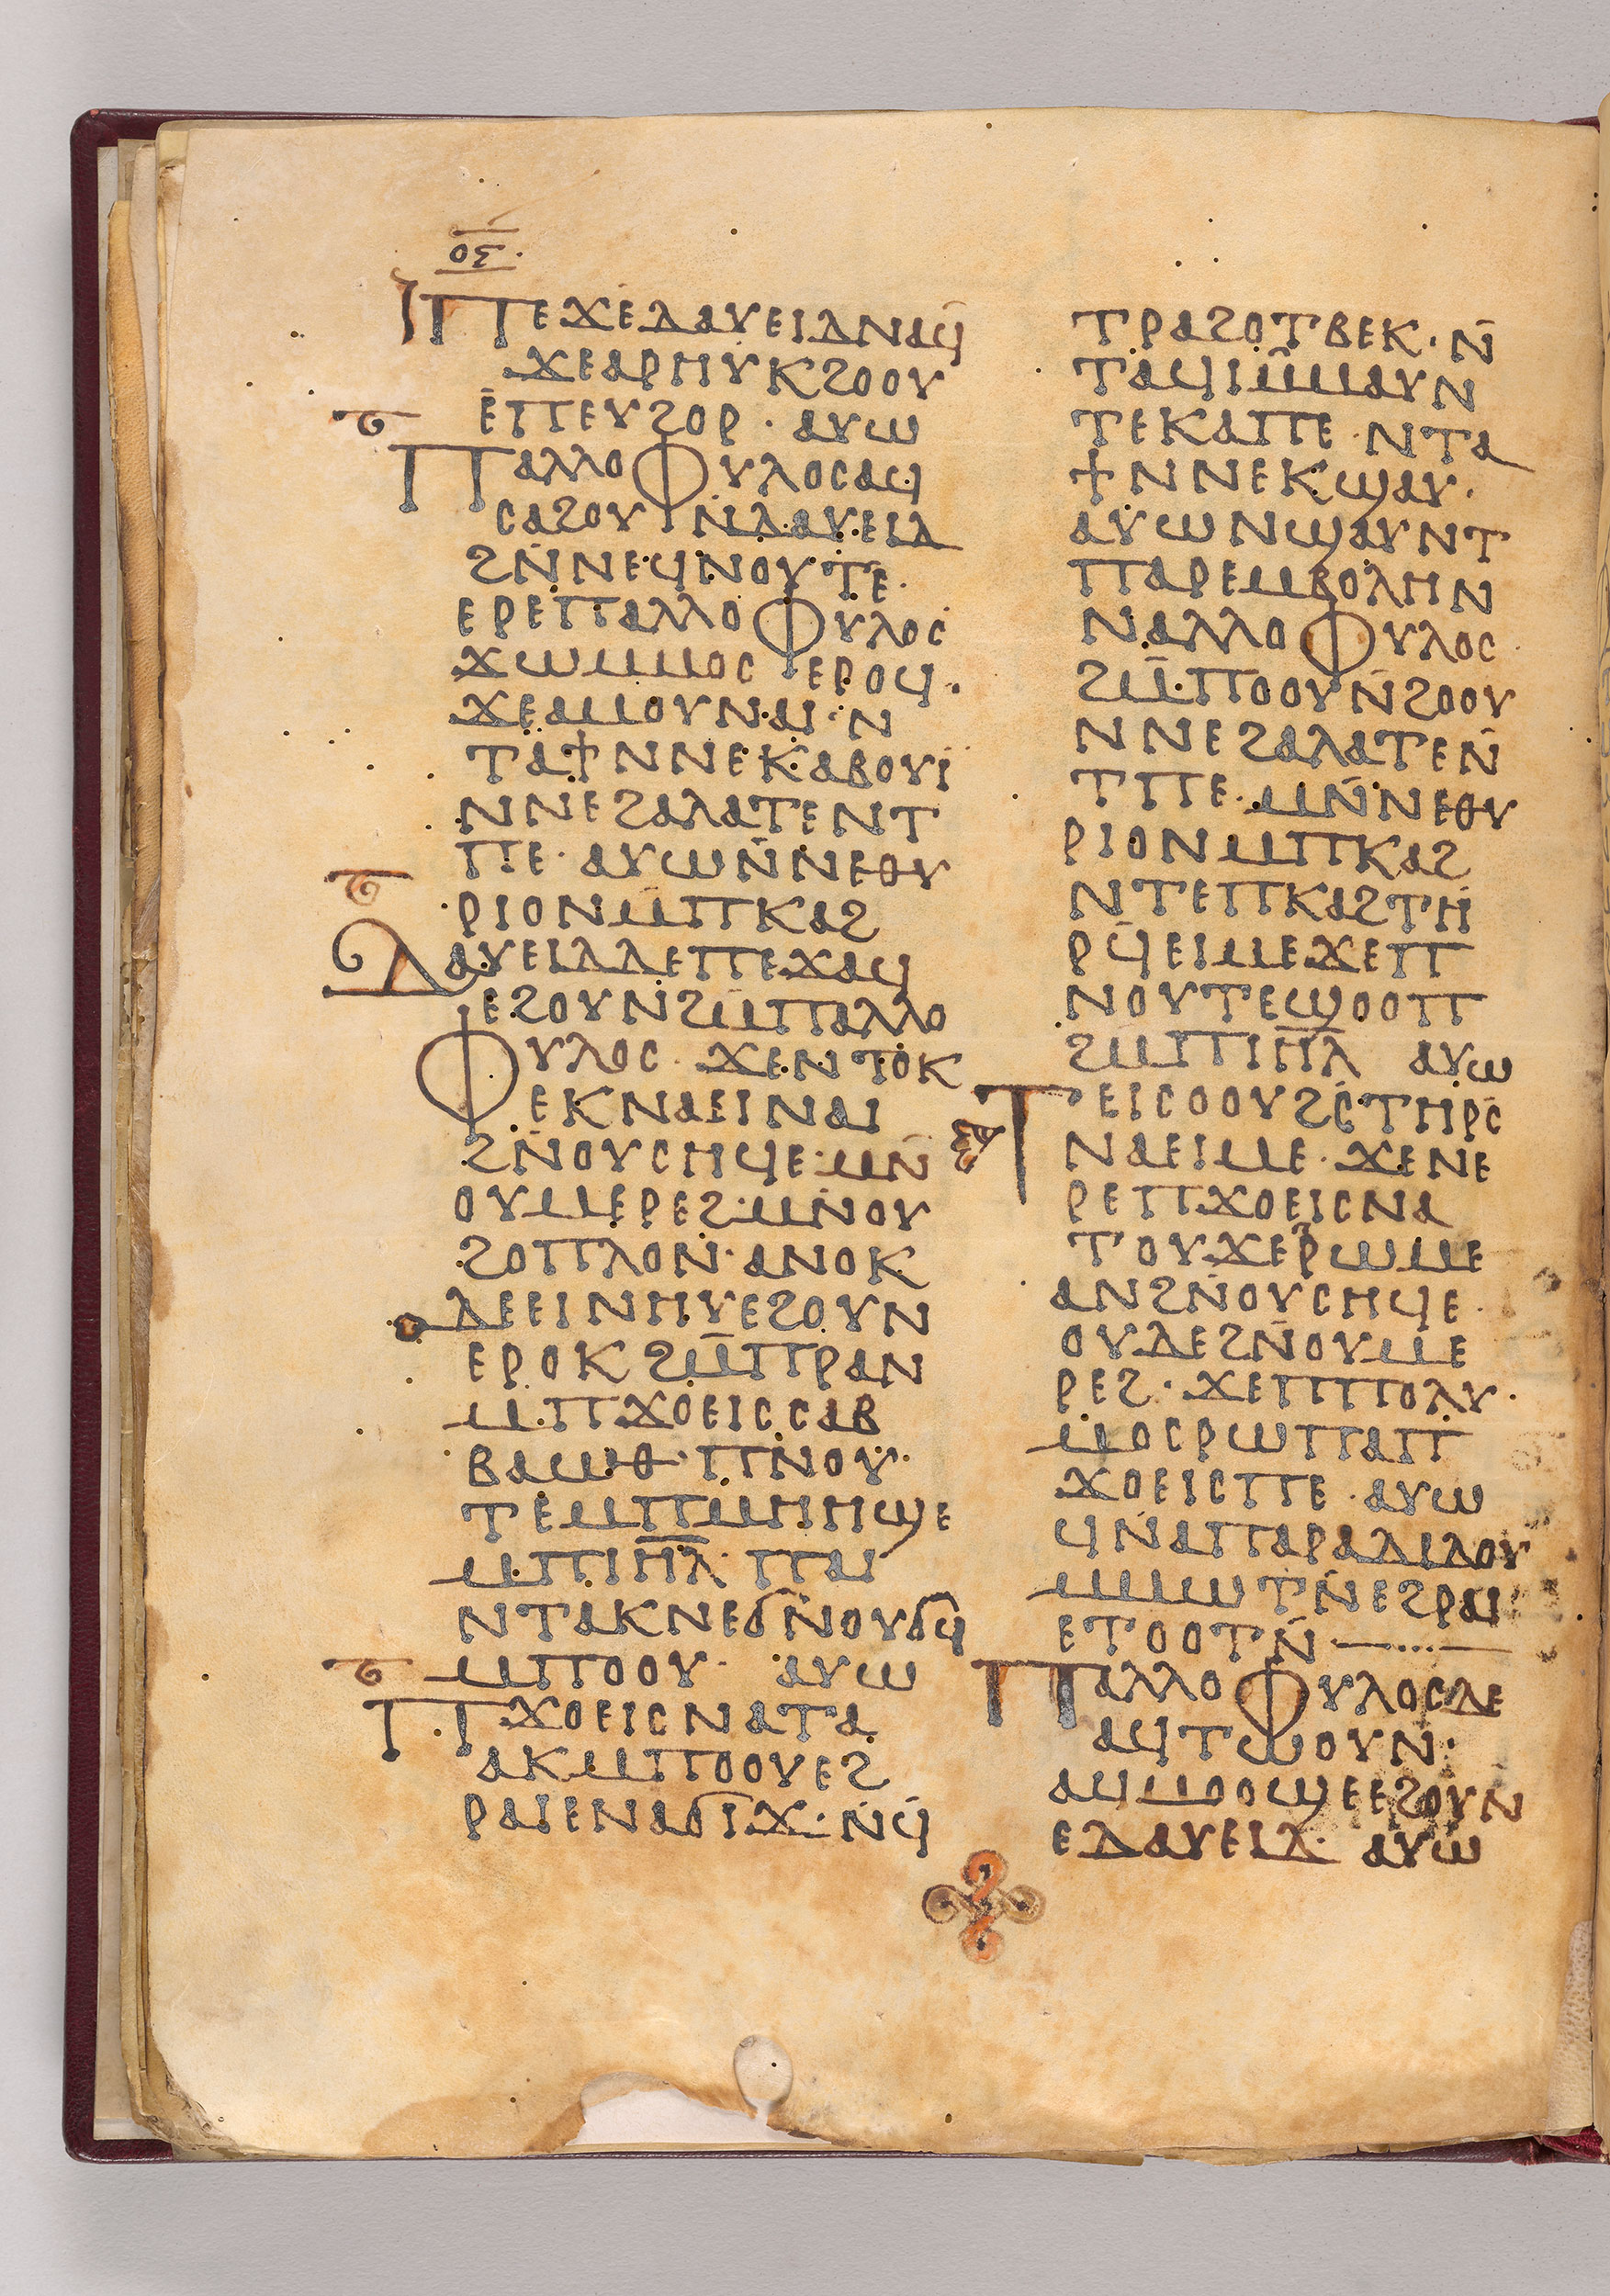 ⲟⲋ
ⲡⲉϫⲉⲇⲁⲩⲉⲓⲇⲛⲁϥ
ϫⲉⲁⲣⲏⲩⲕϩⲟⲟⲩ
ⲉ̄ⲡⲉⲩϩⲟⲣ · ⲁⲩⲱ
ⲡⲁⲗⲗⲟⲫⲩⲗⲟⲥⲁϥ
ⲥⲁϩⲟⲩ ⲛ̄ⲇⲁⲩⲉⲓⲇ
ϩⲛ̄ⲛⲉϥⲛⲟⲩⲧⲉ ·
ⲉⲣⲉⲡⲁⲗⲗⲟⲫⲩⲗⲟⲥ
ϫⲱⲙⲙⲟⲥ ⲉⲣⲟϥ ·
ϫⲉⲁⲙⲟⲩⲛⲁⲓ · ⲛ
ⲧⲁϯⲛⲛⲉⲕⲁⲃⲟⲩⲓ̈
ⲛⲛⲉϩⲁⲗⲁⲧⲉⲛⲧ
ⲡⲉ · ⲁⲩⲱⲛ̄ⲛⲉⲑⲩ
ⲣⲓⲟⲛⲙ̄ⲡⲕⲁϩ
ⲇⲁⲩⲉⲓⲇⲇⲉⲡⲉϫⲁϥ
ⲉϩⲟⲩⲛϩⲙ̄ⲡⲁⲗⲗⲟ
ⲫⲩⲗⲟⲥ · ϫⲉⲛⲧⲟⲕ
ⲉⲕⲛⲁⲉⲓⲛⲁⲓ
ϩⲛ̄ⲟⲩⲥⲏϥⲉ · ⲙⲛ̄
ⲟⲩⲙⲉⲣⲉϩ · ⲙⲛ̄ⲟⲩ
ϩⲟⲡⲗⲟⲛ · ⲁⲛⲟⲕ
ⲇⲉⲉⲓⲛⲏⲩⲉϩⲟⲩⲛ
ⲉⲣⲟⲕ ϩⲙ̄ⲡⲣⲁⲛ
ⲙ̄ⲡϫⲟⲉⲓⲥⲥⲁⲃ
ⲃⲁⲱⲑ · ⲡⲛⲟⲩ
ⲧⲉⲙ̄ⲡⲙⲏⲏϣⲉ
ⲙ̄ⲡⲓⲏ̄ⲗ̄ · ⲡⲁⲓ
ⲛⲧⲁⲕⲛⲉϭⲛ̄ⲟⲩϭϥ
ⲙ̄ⲡⲟⲟⲩ · ⲁⲩⲱ
ⲡϫⲟⲉⲓⲥⲛⲁⲧⲁ
ⲁⲕⲙ̄ⲡⲟⲟⲩⲉϩ
ⲣⲁⲓⲉⲛⲁϭⲓϫ · ⲛϥ̄
ⲧⲣⲁϩⲟⲧⲃⲉⲕ · ⲛ̄
ⲧⲁϥⲓⲙ̄ⲙⲁⲩⲛ
ⲧⲉⲕⲁⲡⲉ · ⲛⲧⲁ
ϯⲛⲛⲉⲕϣⲁⲩ ·
ⲁⲩⲱⲛϣⲁⲩⲛⲧ
ⲡⲁⲣⲉⲙⲃⲟⲗⲏⲛ
ⲛⲁⲗⲗⲟⲫⲩⲗⲟⲥ ·
ϩⲙ̄ⲡⲟⲟⲩⲛ̄ϩⲟⲟⲩ
ⲛⲛⲉϩⲁⲗⲁⲧⲉⲛ̄
ⲧⲡⲉ · ⲙⲛ̄ⲛⲉⲑⲩ
ⲣⲓⲟⲛⲙⲡⲕⲁϩ
ⲛⲧⲉⲡⲕⲁϩⲧⲏ
ⲣϥⲉⲓⲙⲉϫⲉⲡ
ⲛⲟⲩⲧⲉϣⲟⲟⲡ
ϩⲙ̄ⲡⲓⲏ̄ⲗ̄ ⲁⲩⲱ
ⲧⲉⲓⲥⲟⲟⲩϩⲥⲧⲏⲣⲥ
ⲛⲁⲉⲓⲙⲉ · ϫⲉⲛⲉ
ⲣⲉⲡϫⲟⲉⲓⲥⲛⲁ
ⲧⲟⲩϫⲉⲣⲱⲙⲉ
ⲁⲛϩⲛ̄ⲟⲩⲥⲏϥⲉ ·
ⲟⲩⲇⲉϩⲛ̄ⲟⲩⲙⲉ
ⲣⲉϩ · ϫⲉⲡⲡⲟⲗⲩ
ⲙⲟⲥⲣⲱⲡⲁⲡ
ϫⲟⲉⲓⲥⲡⲉ · ⲁⲩⲱ
ϥⲛⲁⲡⲁⲣⲁⲇⲓⲇⲟⲩ
ⲙⲙⲱⲧⲛ̄ⲉϩⲣⲁⲓ
ⲉⲧⲟⲟⲧⲛ̄
ⲡⲁⲗⲗⲟⲫⲩⲗⲟⲥⲇⲉ
ⲁϥⲧⲱⲟⲩⲛ ·
ⲁϥⲙⲟⲟϣⲉⲉϩⲟⲩⲛ
ⲉⲇⲁⲩⲉⲓⲇ · ⲁⲩⲱ